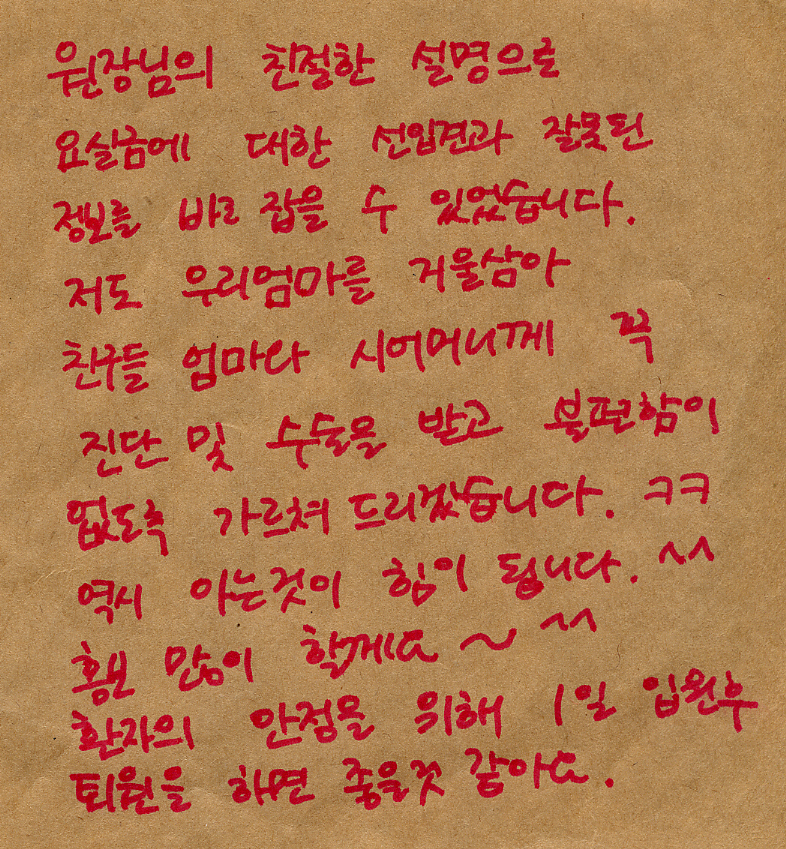 원장님의 친절한 설명으로
요실금에 대한 선입견과 잘못된
정보를 바로 잡을 수 있었습니다.
저도 우리엄마를 거울삼아
친구들 엄마랑 시어머니께 꼭
진단 및 수술을 받고 불편함이
없도록 가르쳐 드리겠습니다. ㅋㅋ
역시 아는것이 힘이 됩니다. ^^
홍보 많이 할께요 ~ ^^
환자의 안정을 위해 1일 입원후
퇴원을 하면 좋을것 같아요.